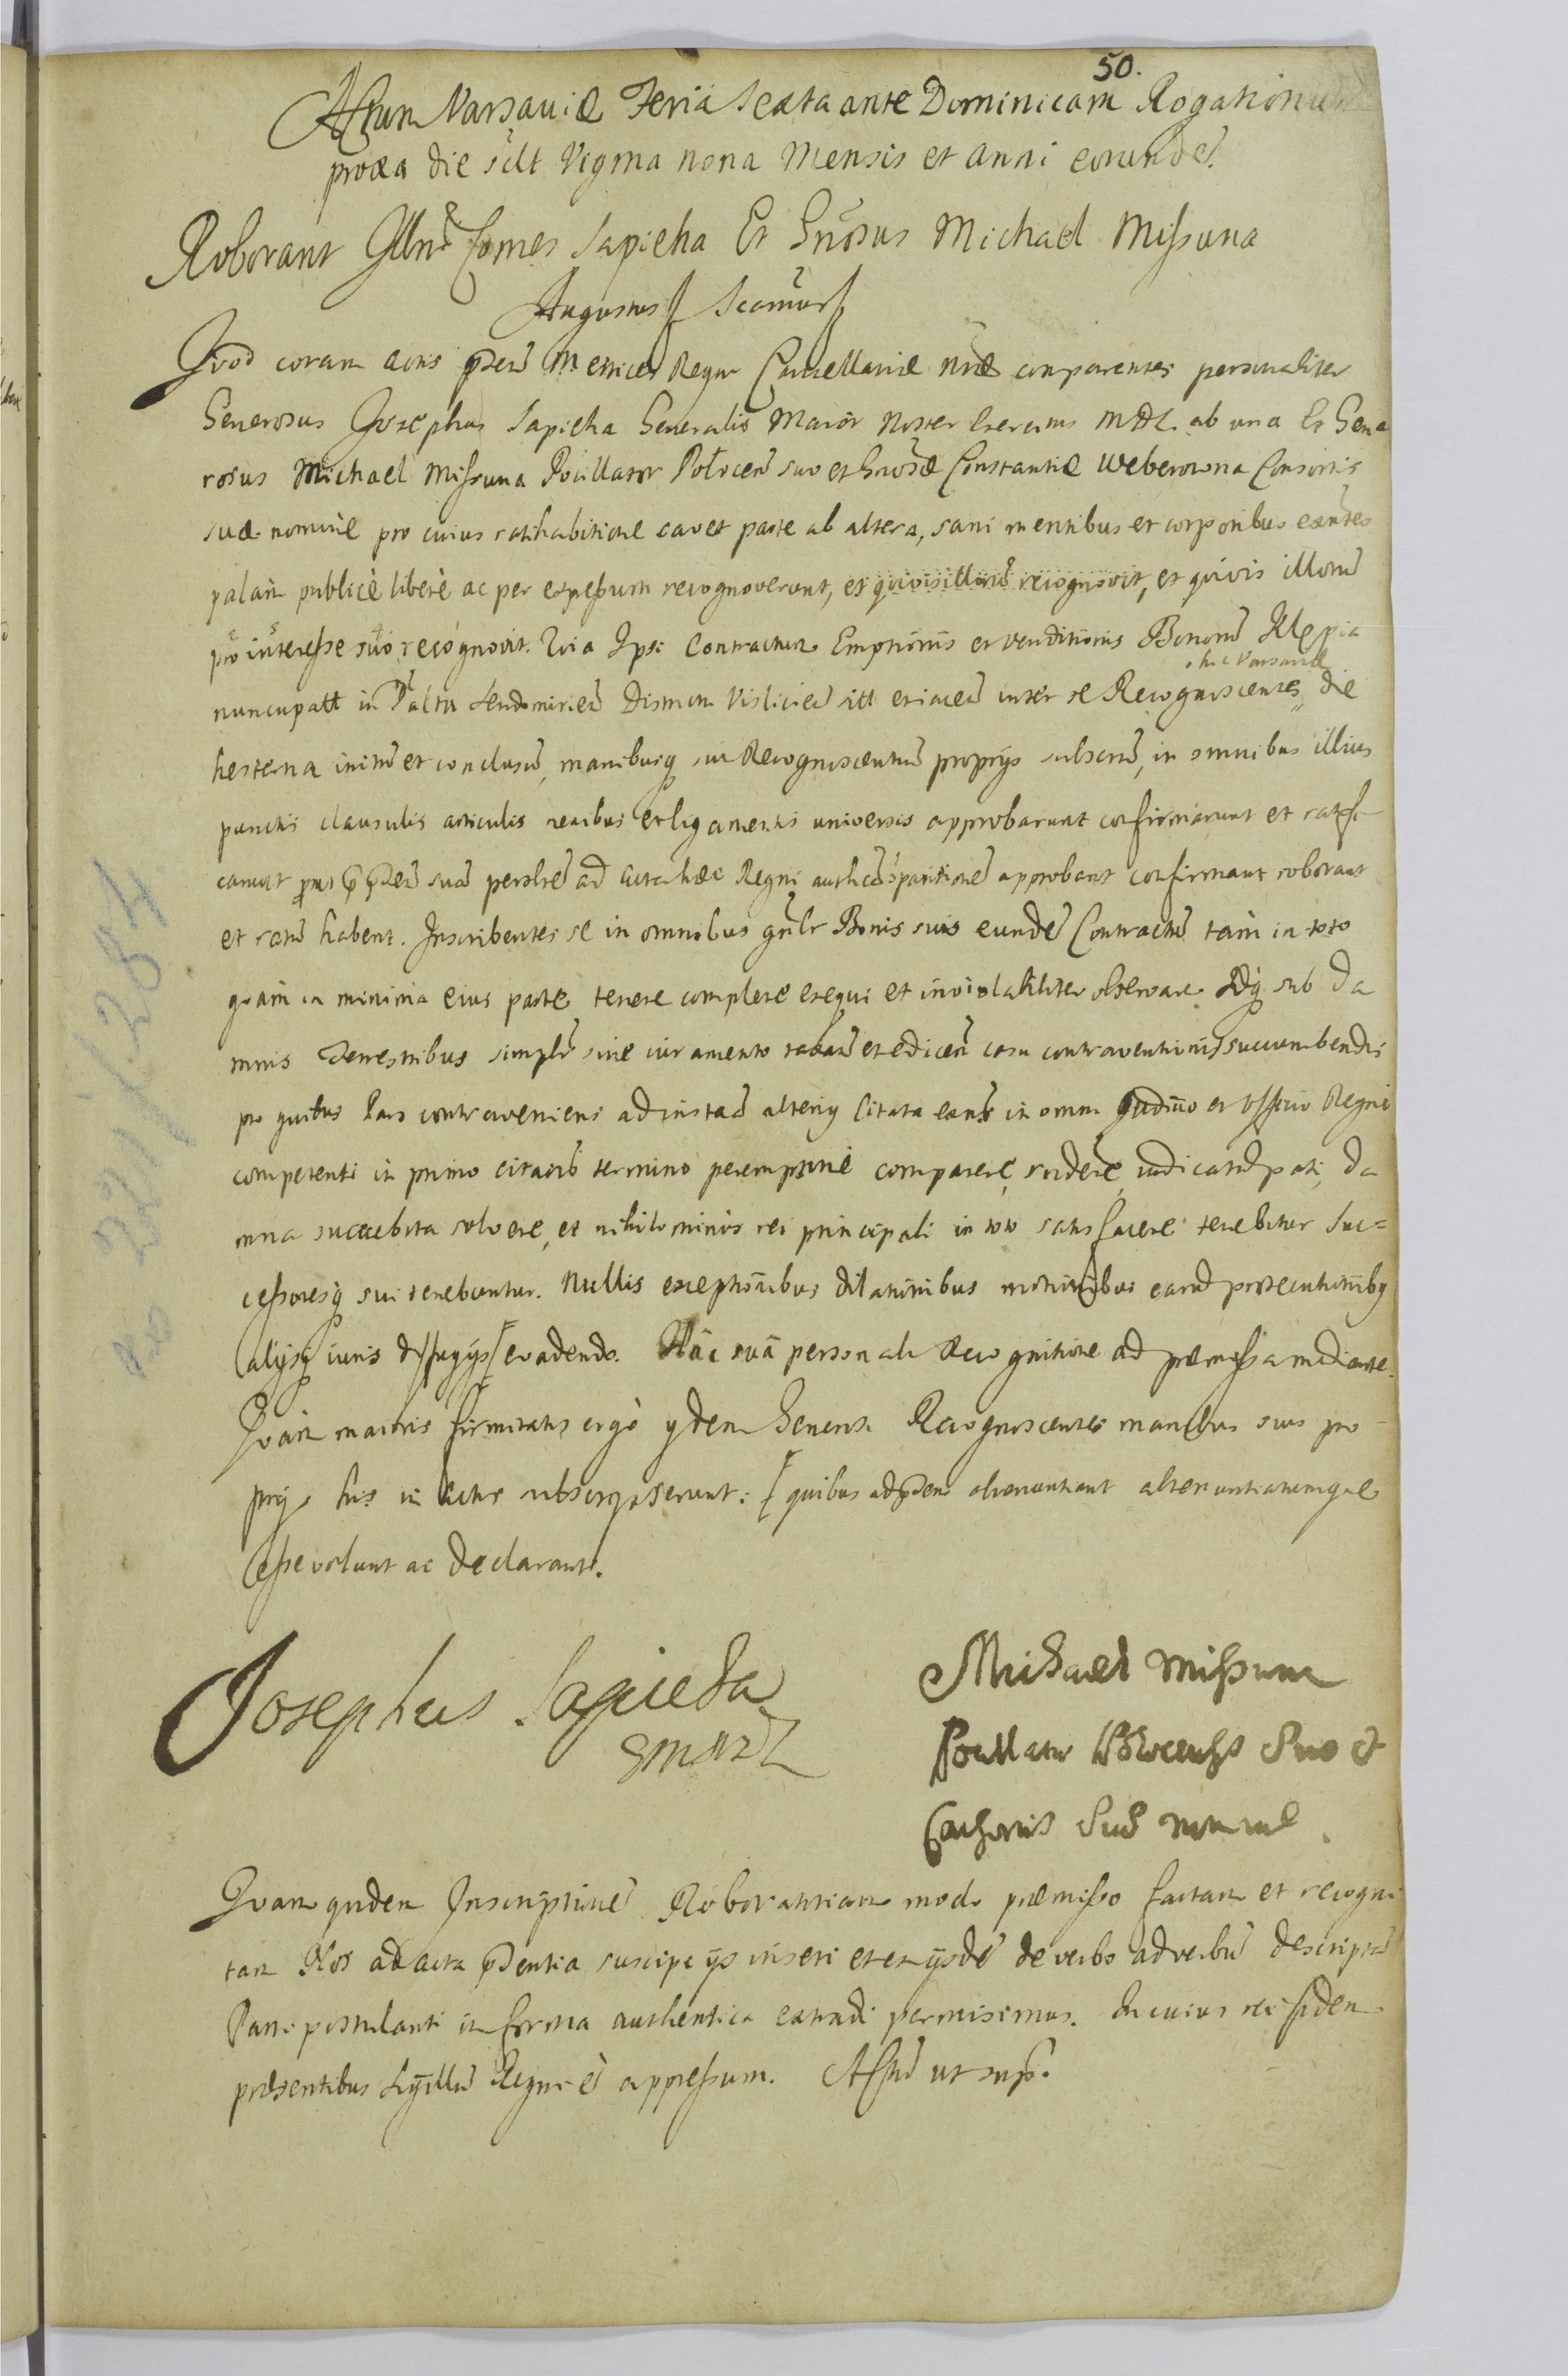 50.
Actum Varsaviæ Feria Sexta ante Dominicam Rogationum
proxa die scilt Vigma nona Mensis et Anni eorunde.
Roborant Comes Sapieha Et Gnosus Michael Missuna
Augustus
Quod coram actis Metrices Regni Cancellariæ nræ comparentes personaliter
Generosus Josephus Sapieha Generalis Maior Noster Exercitus MDL ab una Et Gene
rosus Michael Missuna Pocillator Połocen suo et Gnosæ Constantiæ Weberowna Consortis
suæ nomine pro cuius ratihabitione cavet parte ab altera, sani mentibus et corporibus exntes
palam publicè liberè ac per expressum recognoverunt, et quivis illorum recognovit, et quivis illorum
pro interesse suo recognovit. Quia Ipsi Contractum Emptionis et venditionis Bonorum Klepia
hic Varsaviæ
nuncupatt in Palttu Sendomirien Districtu Vislicien sitt et iacen inter se Recognoscentes, die
hesterna initum et conclusum, manibusq sui Recognoscentium proprijs subscrm, in omnibus illius
punctis clausulis articulis nexibus et ligamentis universis approbarunt confirmarunt et ratifi
carunt suam ad Acta hæc Regni approbant confirmant roborant
et ratum habent. Inscribentes se in omnibus gnlr Bonis suis eundem Contractum tam in toto
quàm in minima eius parte tenere complere exequi et inviolabiliter observare. Idq sub da
mnis Terrestribus simplr sine iuramento taxan et edicen casu contraventionis succumbendis
pro quibus Pars contraveniens ad instam alterius Citata in omni Judicio et Officio Regni
competenti in primo citaonis termino peremptorie comparere, rndere, iudicatum pati, da
mna succubita solvere, et nihilominus rei principali in toto satisfacere tenebitur Suc=
cessoresq sui tenebuntur. Nullis exceptionibus dilationibus motionibus earum prosecutionibq
alijsq iuris diffugijs evadendo. Hàc suâ personali Recognitione ad præmissa mediante.
Quàm maioris firmitatis ergò ijdem Generosi Recognoscentes manibus suis pro
prijs his in Actis subscripserunt: quibus
esse volunt ac declarant.
Josephus Sapieha
Michael Missuna
Pocillator Połocensis Suo et
Consortis Suæ nomine.
Quam quidem Inscriptionem Roboratoriam modo præmisso factam et recogni
tam Nos ad acta pdentia suscipi ijs inseri et ex ijsdem de verbo ad verbum descriptam
Parti postulanti in forma authentica extradi permisimus. In cuius rei fidem
præsentibus Sigillum Regni è appressum. Actum ut supr.